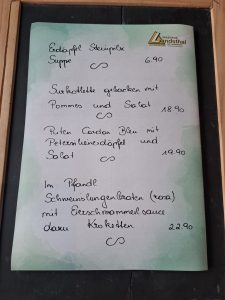 Landsthal
Erdäpfel Steinpilz
Suppe 6.90
Surkotlette gebacken mit
Pommes und Salat 18.90
Puten Cordon Bleu mit
Petersilienerdäpfel und
Salat 19.90
Im Pfandl
Schweinslungenbraten (rosa)
mit Eierschwammerlsauce
dazu Kroketten 22.90